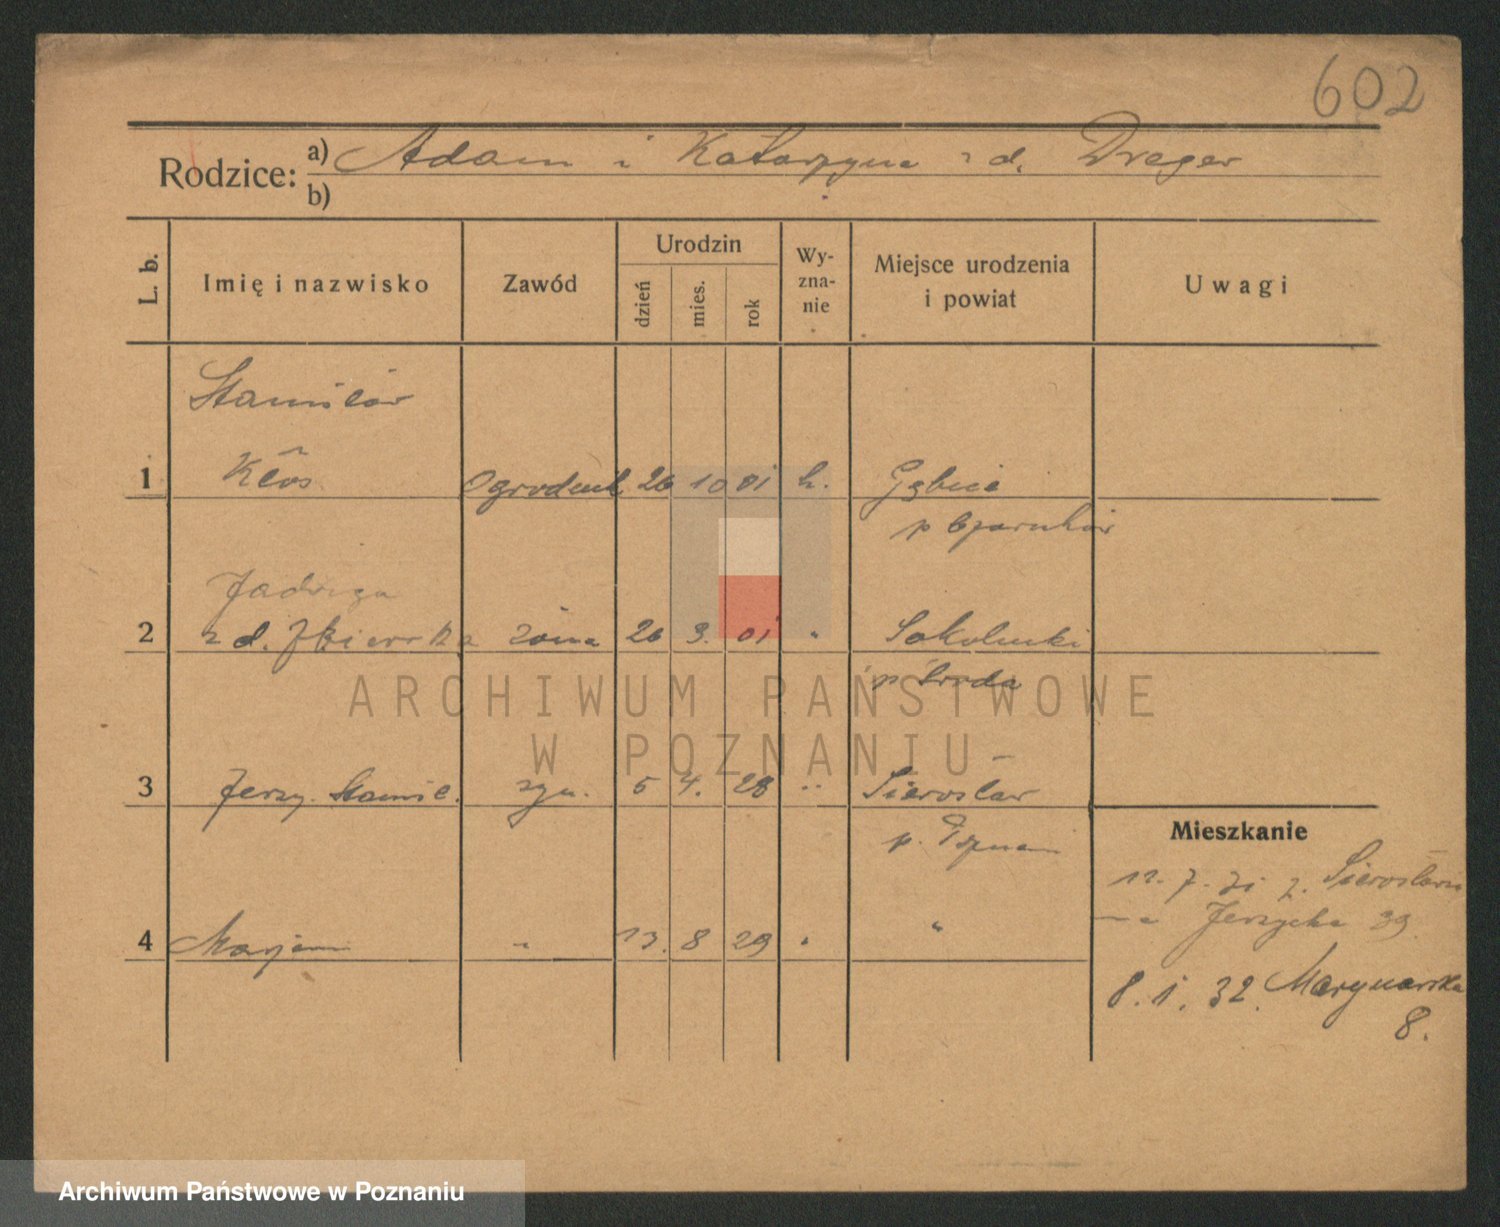 602
Rodzice: a) Adam i Katarzyna z d. Dreger
b)
L. b.
Imię i nazwisko
Zawód
Urodzin
dzień
mies.
rok
Wy-
zna-
nie
Miejsce urodzenia
i powiat
Uwagi
Stanisław
1 Kłos Ogrodnik 26 10 01 k. Gębice
p Czarnków
Jadwiga
2 z d. żona 26 3. 01 " Sokolniki
p Środa
3 Jerzy. Stanisł. syn. 5 4. 28 " Sierosław
p. Poznań
4 Marjan " 13. 8 29 " "
Mieszkanie
12. 7. 31 z. Sierosławia
na Jerzycka 39.
8. 1. 32. Marynarska
8.
ARCHIWUM PAŃSTWOWE
W POZNANIU
Archiwum Państwowe w Poznaniu